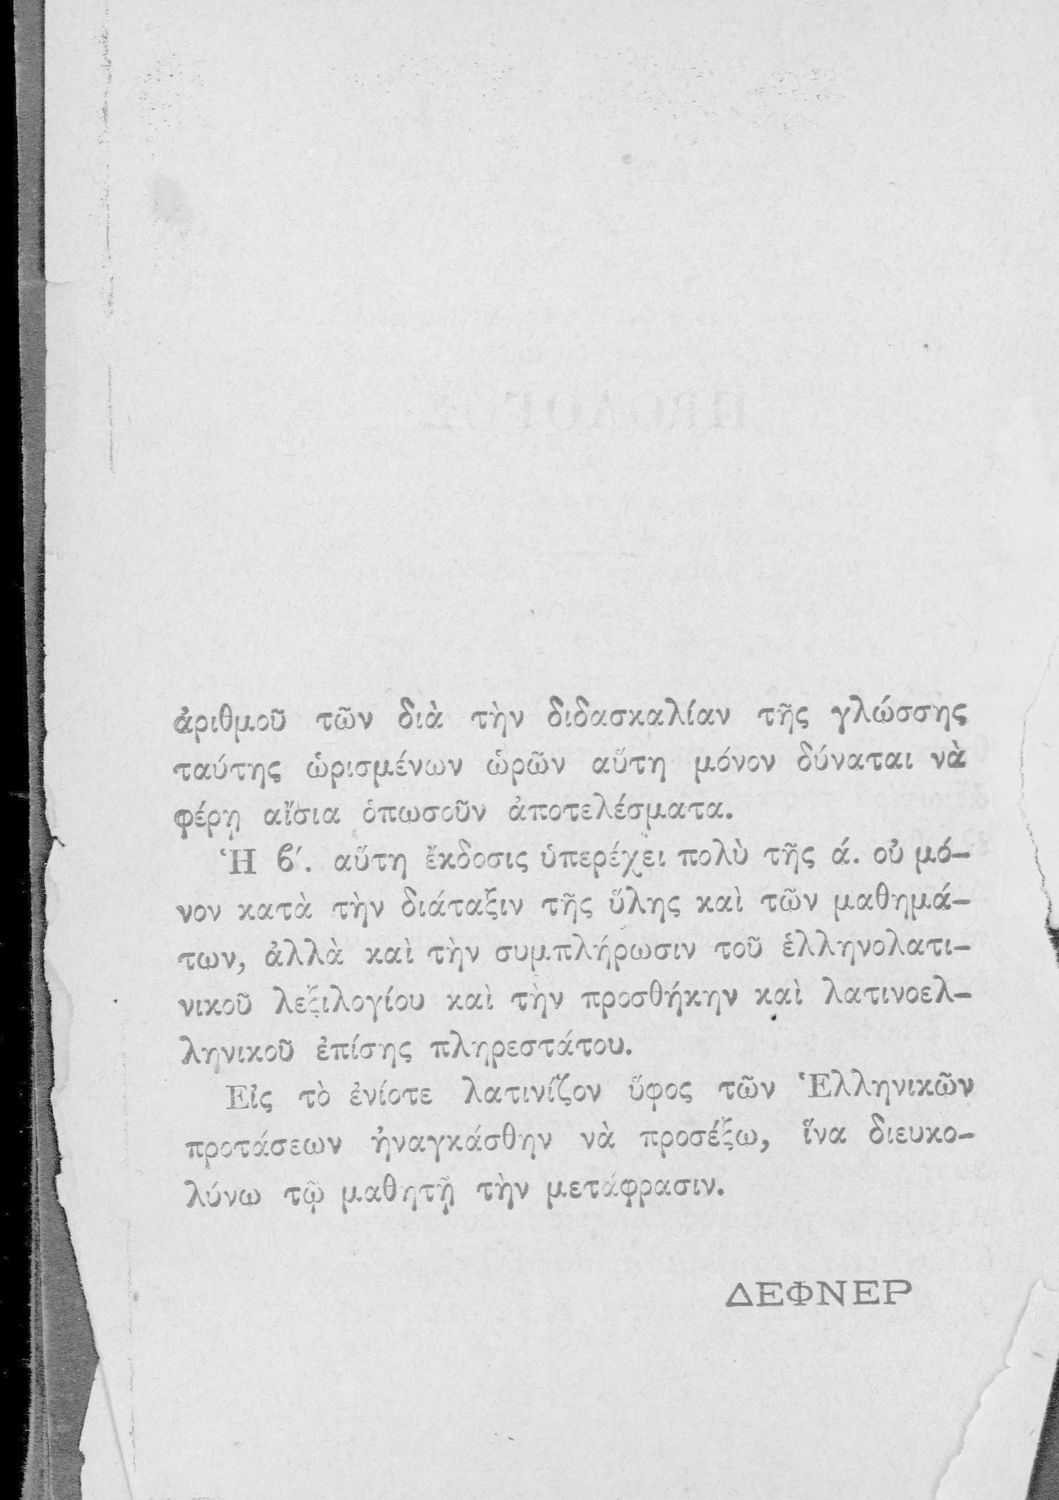 ἀριθμοῦ τῶν διὰ τὴν διδασκαλίαν τῆς γλώσσης
ταύτης ὡρισμένων ὡρῶν αὕτη μόνον δύναται νὰ
φέρῃ αἴσια ὁπωσοῦν ἀποτελέσματα.
Ἡ ϐ′. αὕτη ἔκδοσις ὑπερέχει πολὺ τῆς ά. οὐ μό-
νον κατὰ τὴν διάταξιν τῆς ὕλης καὶ τῶν μαθημά-
των, ἀλλὰ καὶ τὴν συμπλήρωσιν τοῦ ἑλληνολατι-
νικοῦ λεξιλογίου καὶ τὴν προσθήκην καὶ λατινοελ-
ληνικοῦ ἐπίσης πληρεστάτου.
Εἰς τὸ ἐνίοτε λατινίζον ὕφος τῶν Ἑλληνικῶν
προτάσεων ἠναγκάσθην νὰ προσέξω, ἵνα διευκο-
λύνω τῷ μαθητῇ τὴν μετάφρασιν.
ΔΕΦΝΕΡ